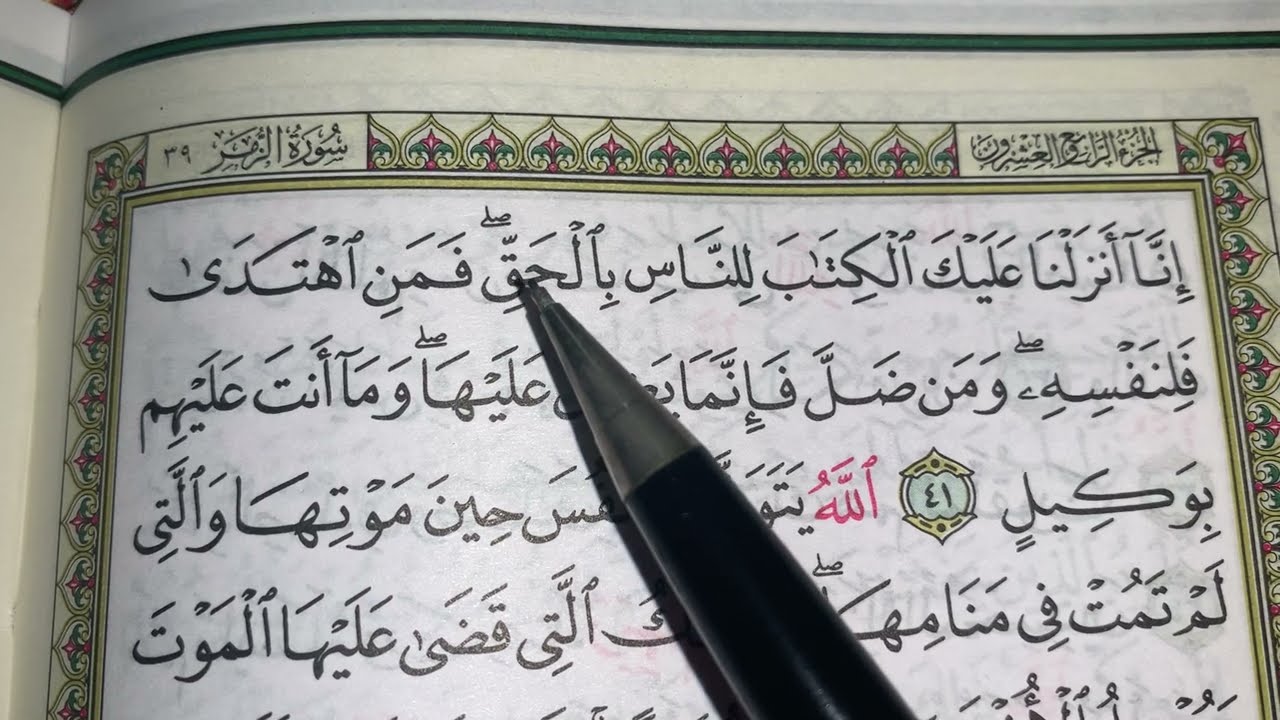 الجزء الرابع والعشرون
سورة الزمر ٣٩
إِنَّآ أَنزَلْنَا عَلَيْكَ ٱلْكِتَٰبَ لِلنَّاسِ بِٱلْحَقِّ ۖ فَمَنِ ٱهْتَدَىٰ
فَلِنَفْسِهِۦ ۖ وَمَن ضَلَّ فَإِنَّمَا عَلَيْهَا ۖ وَمَآ أَنتَ عَلَيْهِم
بِوَكِيلٍ ٤١ ٱللَّهُ حِينَ مَوْتِهَا وَٱلَّتِى
لَمْ تَمُتْ فِى مَنَامِهَا ۖ ٱلَّتِى قَضَىٰ عَلَيْهَا ٱلْمَوْتَ